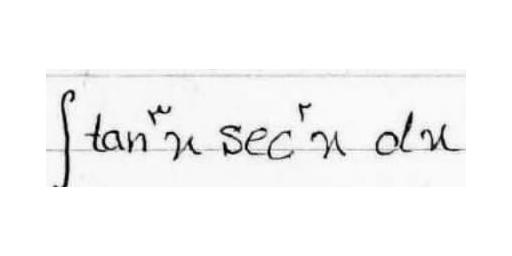 ∫ tan^۳ x sec^۲ x dx